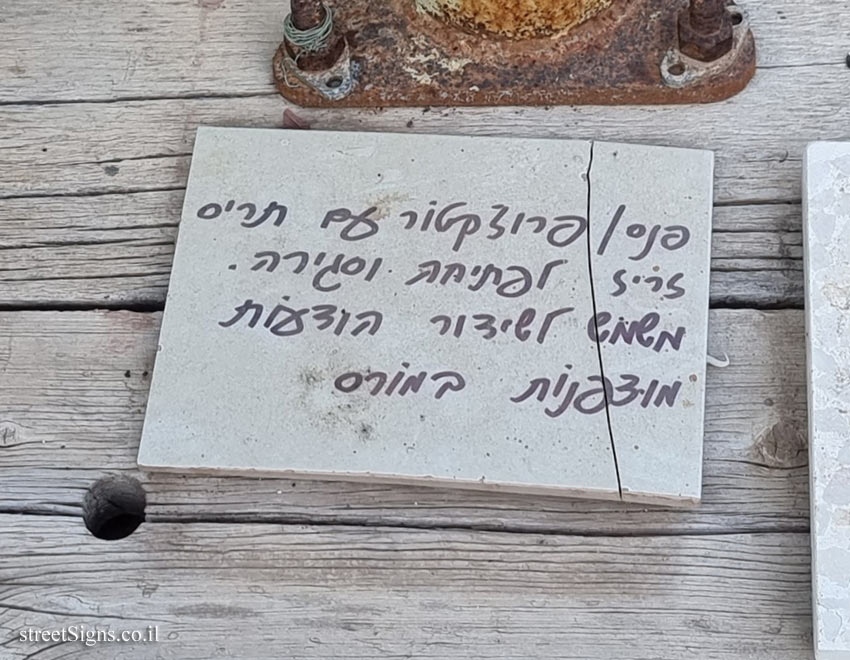 פנס/פרוצקטור עם תריס
זריז לפתיחה וסגירה.
משמש לשידור הודעות
מוצפנות במורס
streetSigns.co.il